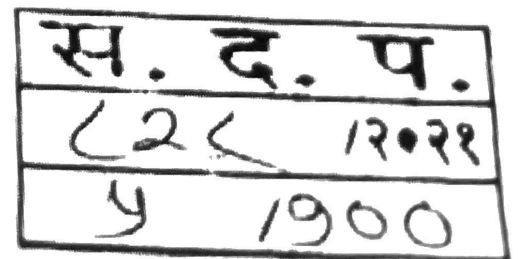 स. द. प.
८२८ /२०२१
५ /७००